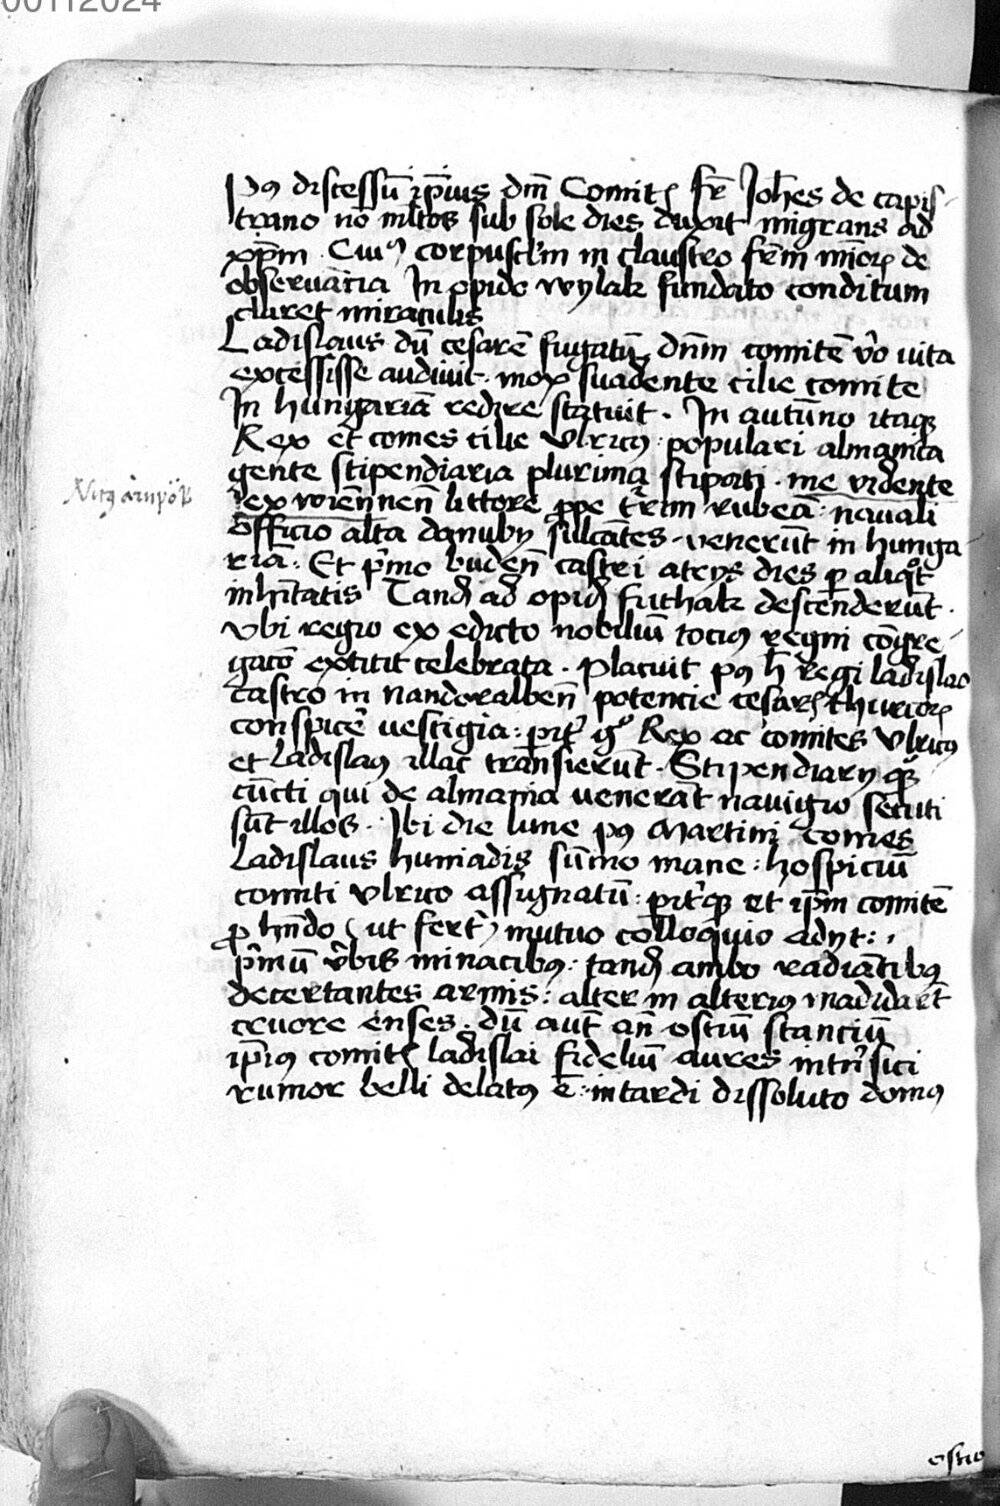 00112024
Pꝰ discessū ip̄ius dm̄ Comitꝭ fr̄ Joh̄es de capis-
trano nō ml̄tos sub sole dies duxit migrans ad
xp̄m . Cuiꝰ corpuscl̄m in claustro fr̄m mi̅orꝝ de
obseruātia In opido wylak fundato conditum
claret miraculis
Ladislaus dū cesarē fugatū, dn̄m comitē v̄o vita
excessisse audiuit . mox suadente cilie comite
In hungariā redire statuit . In autūno itaqꝫ
Rex et comes cilie Vlricꝰ : populari almanica
gente stipendiaria plurima stipati . me vidente
ex wiēnnen̄ littore ꝓpe t̄rim rubeā : nauali
officio alta danuby sulcātes . venerūt in hunga-
riā . Et p̄mo buden̄ castri atrijs dies ꝑ aliqͦt
inhītatis Tandꝫ ad opidꝫ futhak descenderūt .
Vbi regio ex edicto nobiliū tociꝰ regni cōgre-
gacō extitit celebrata . Placuit pꝰ h̄ regi ladislao
castro in Nandoralben̄ potencie cesarꝭ thurcorꝝ
conspice̅ vestigia : p̱it̄ gͦ Rex ac comites Vlricꝰ
et Ladislaꝰ illac transierūt . Stipendiary qͦꝫ
cūcti qui de almania venerāt nauigio secuti
sūt illos . Ibi die lune pꝰ Martini Comes
Ladislaus huniadis sūmo mane : hospiciū
comiti Vlrico assignatū : p̱it̄qꝫ et ip̄m comitē
ꝓ hn̄do ( ut fert̄ ) mutuo colloquio adyt : .
p̄mū v̄bis minacibꝰ : tandꝫ ambo radiātibꝰ
decertantes armis : alter in alteriꝰ madidar̄t
cruore enses . dū aut̄ an̄ ostiū stanciū
ip̄iꝰ comitꝭ ladislai fideliū aures int̄nsici
rumor belli delatꝰ ē : intardi dissoluto domꝰ
ostio